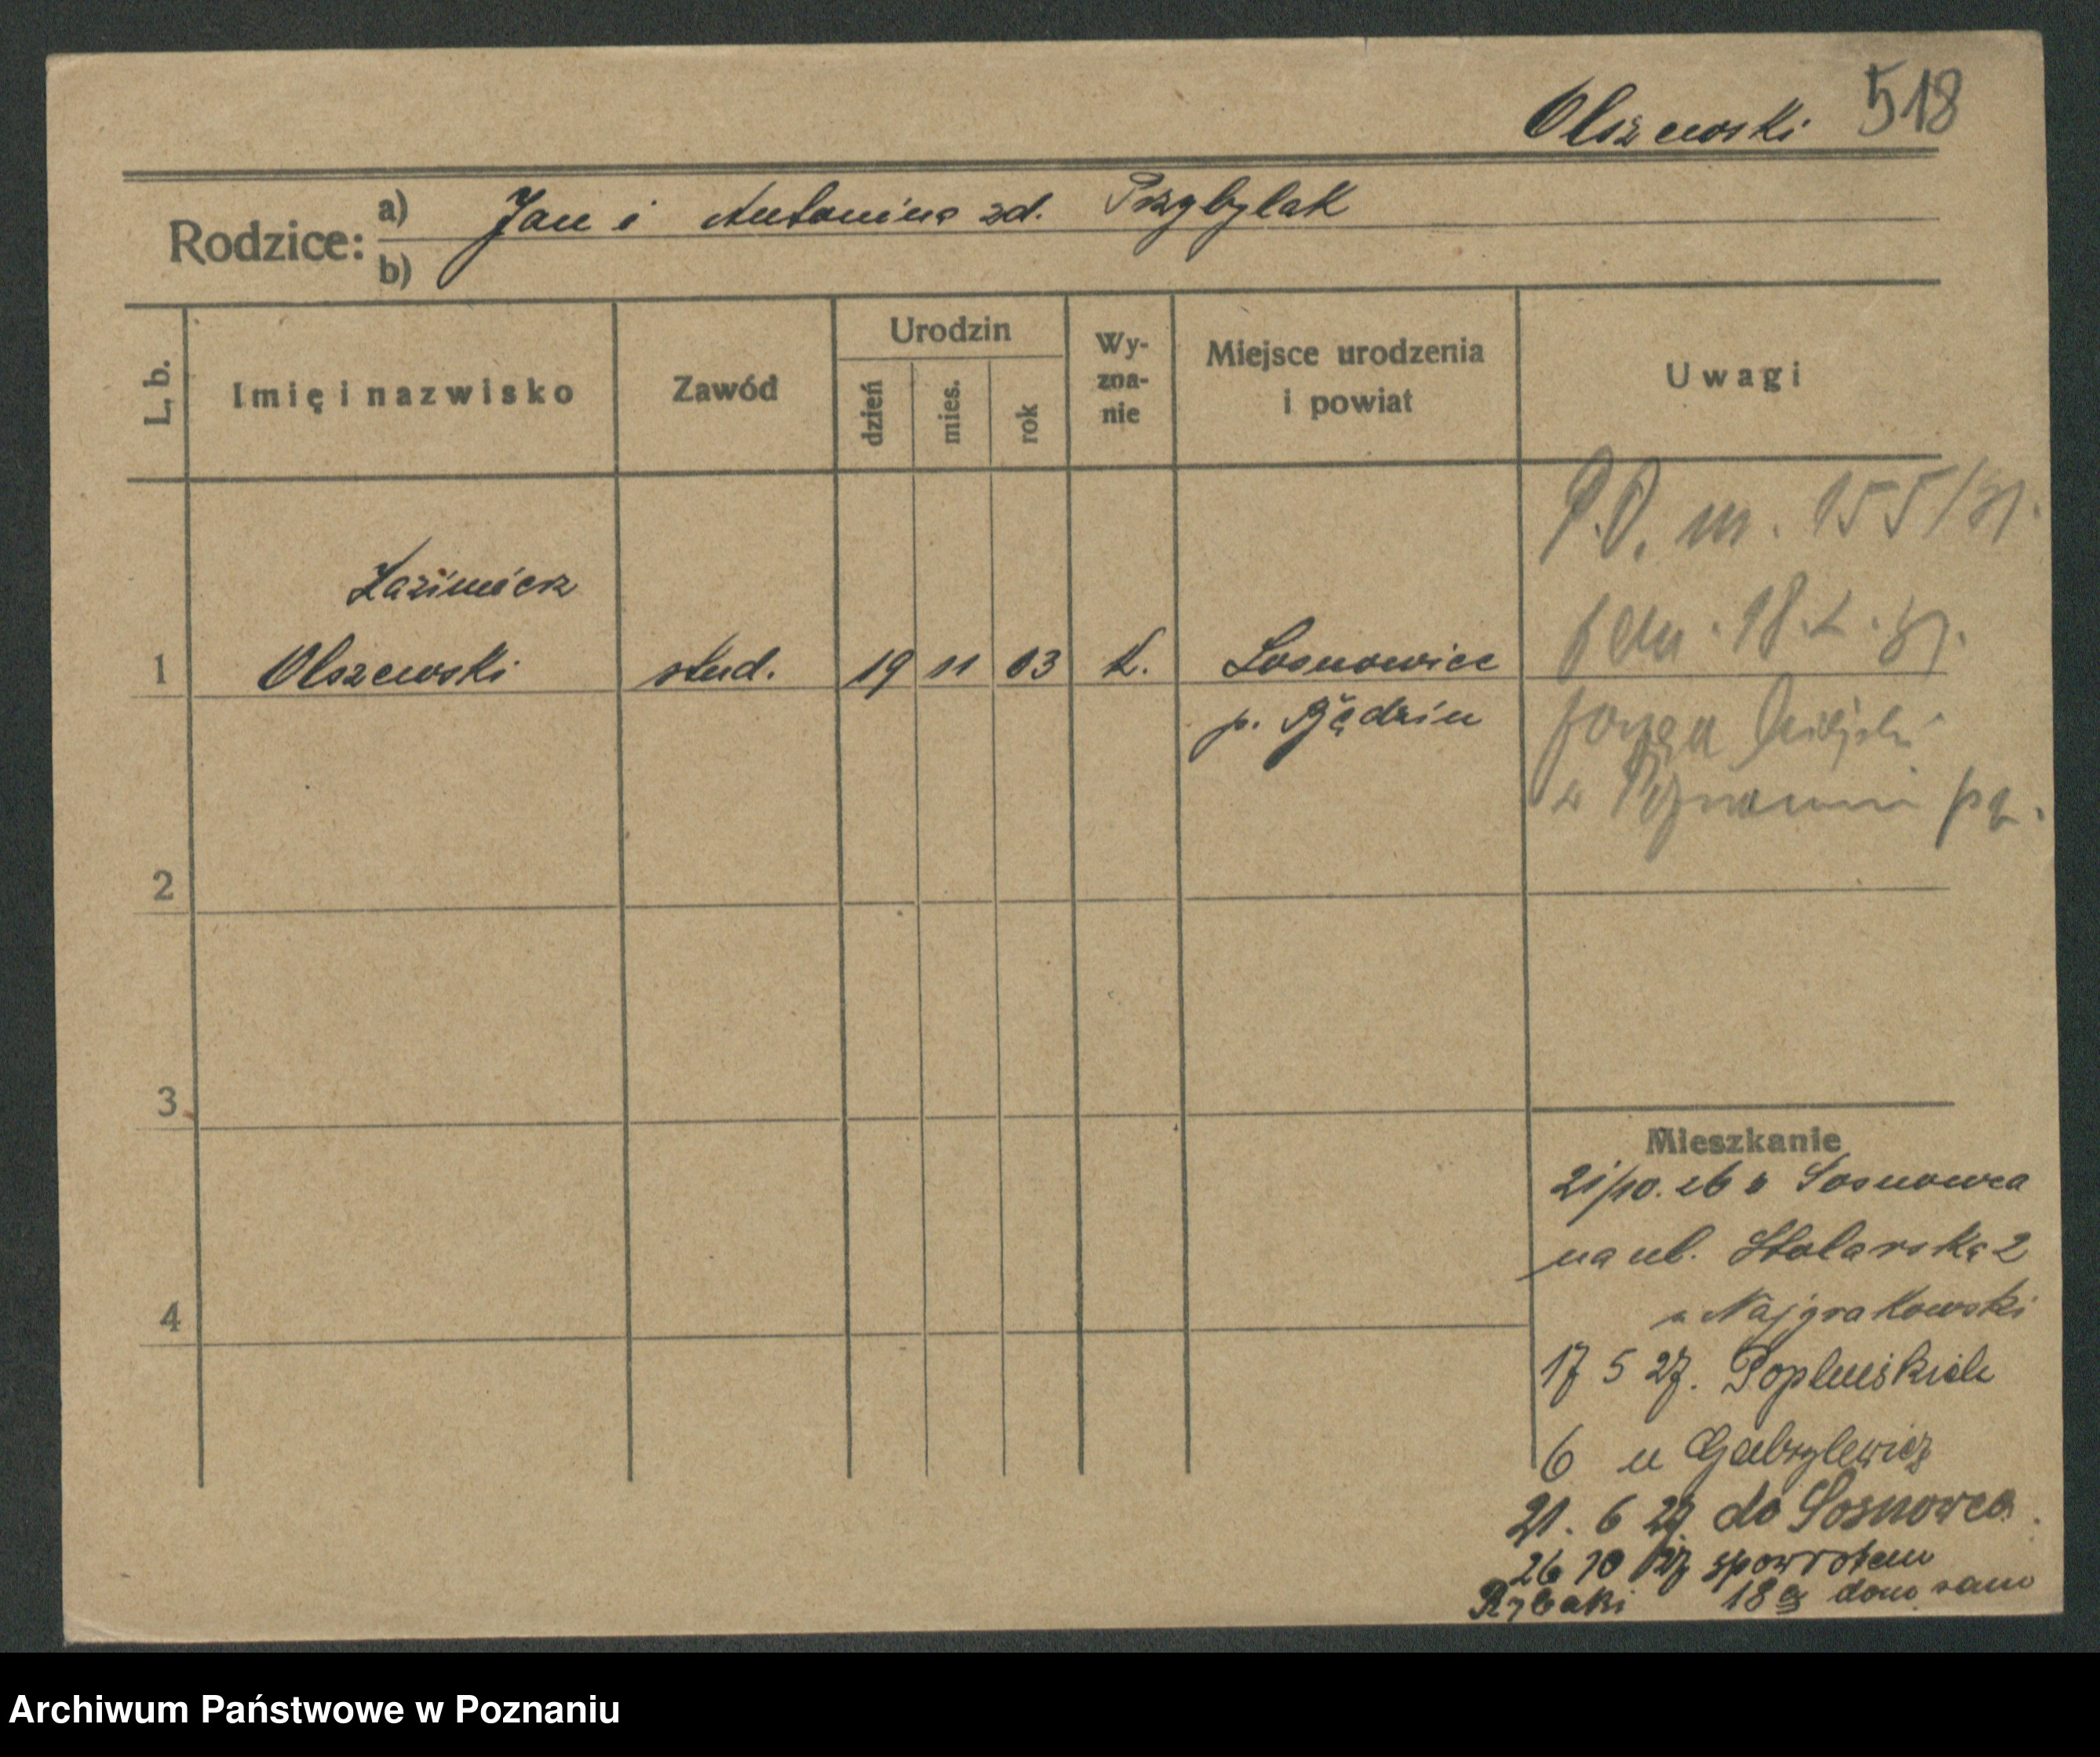 Olszewski 518
Rodzice: a) Jan i Antonina zd. Przybylak
b)
L. b. Imię i nazwisko Zawód Urodzin dzień mies. rok Wy-zna-nie Miejsce urodzenia i powiat Uwagi
P.O. nr. 155/31.
z dn. 18.2.31.
Kazimierz
1 Olszewski stud. 19 11 03 k. Sosnowice
p. Będzin
w Poznaniu
2
3
4
Mieszkanie
21/10.26 z Sosnowca
na ul. Stolarską 2
u Najgrakowski
17 5 27. Poplińskich
6 u Gabrylewicz
21. 6 27. do Sosnowca.
26 10 27 spowrotem
Rybaki 18a dom. sam
Archiwum Państwowe w Poznaniu